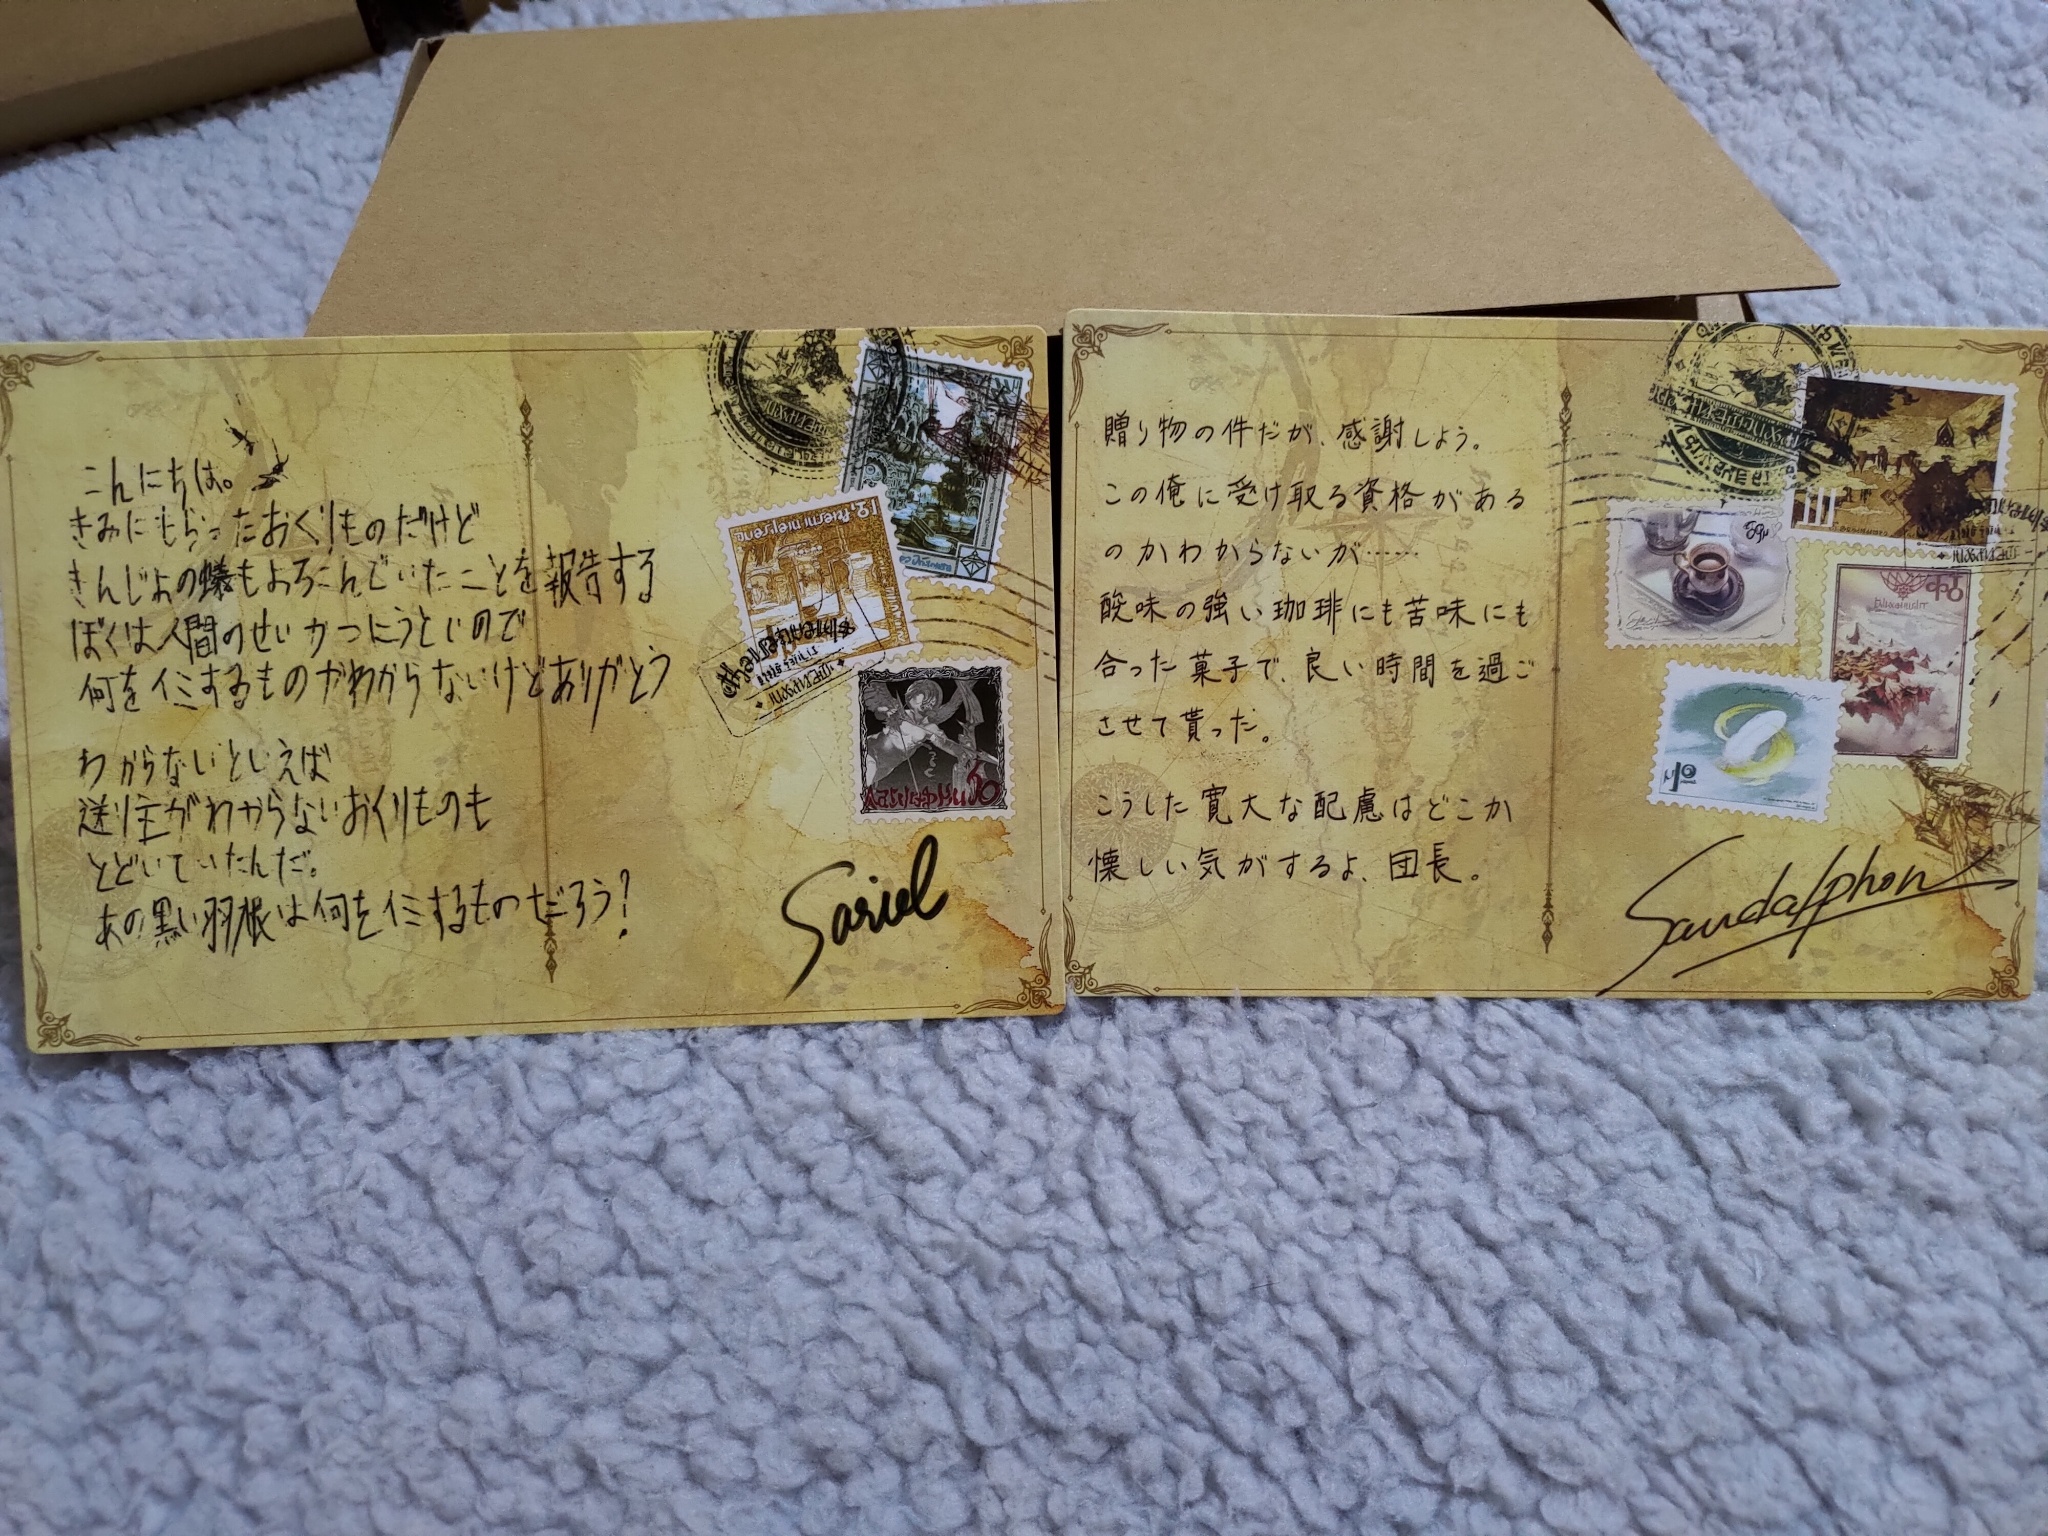 こんにちは。
きみにもらったおくりものだけど
きんじょの蟻もよろこんでいたことを報告する
ぼくは人間のせいかつにうといので
何をイミするものかわからないけどありがとう
わからないといえば
送り主がわからないおくりものも
とどいていたんだ。
あの黒い羽根は何をイミするものだろう?
Sariel
贈り物の件だが、感謝しよう。
この俺に受け取る資格がある
のかわからないが……
酸味の強い珈琲にも苦味にも
合った菓子で、良い時間を過ご
させて貰った。
こうした寛大な配慮はどこか
懐しい気がするよ、団長。
Sandalphon